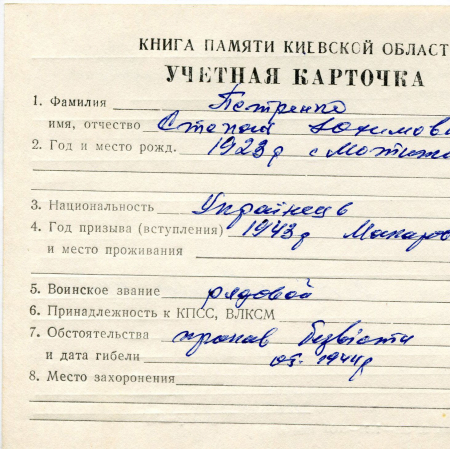 КНИГА ПАМЯТИ КИЕВСКОЙ ОБЛАСТ
УЧЕТНАЯ КАРТОЧКА
1. Фамилия Петренко
имя, отчество Степан Юхимови
2. Год и место рожд. 1923 р с Мотижи
3. Национальность Українець
4. Год призыва (вступления) 1943 р Макаров
и место проживания
5. Воинское звание рядовой
6. Принадлежность к КПСС, ВЛКСМ
7. Обстоятельства пропав безвісти
и дата гибели 1944р
8. Место захоронения